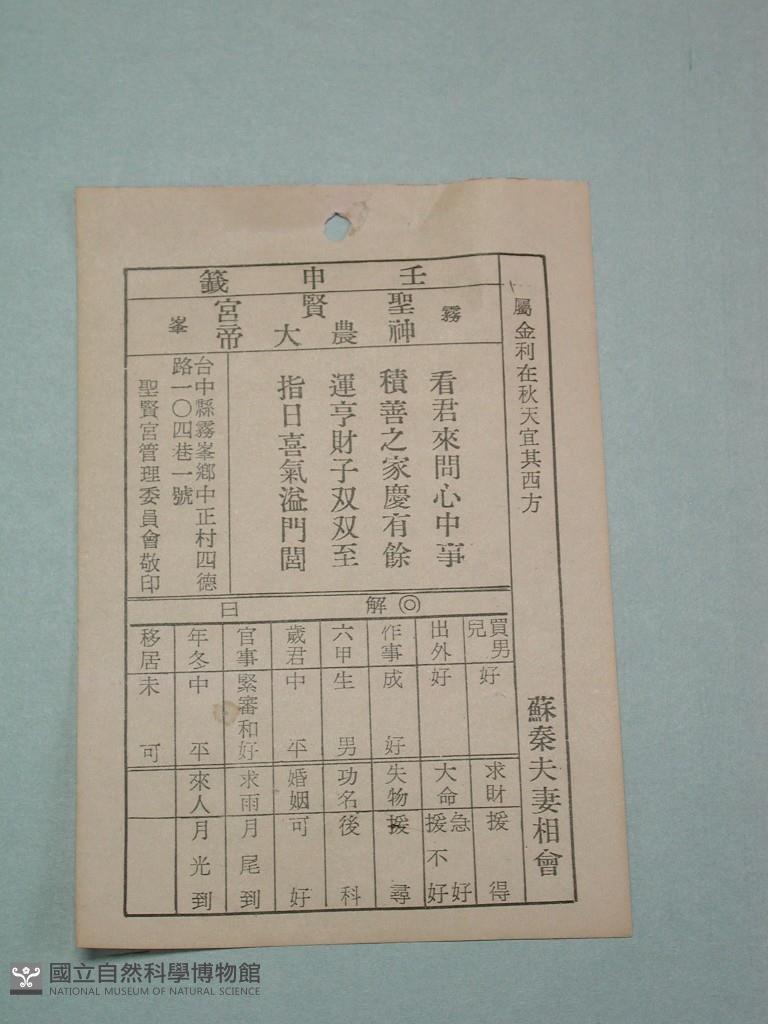 屬金利在秋天宜其西方
蘇秦夫妻相會
壬申籤
霧峯
聖賢宮
神農大帝
看君來問心中事
積善之家慶有餘
運亨財子双双至
指日喜氣溢門閭
台中縣霧峯鄉中正村四德
路一〇四巷一號
聖賢宮管理委員會敬印
◎解曰
買男兒 好
出外 好
作事 成好
六甲 生男
歲君 中平
官事 緊審和好
年冬 中平
移居 未可
求財 援得
大命 急好援不好
失物 援尋
功名 後科
婚姻 可好
求雨 月尾到
來人 月光到
國立自然科學博物館
NATIONAL MUSEUM OF NATURAL SCIENCE